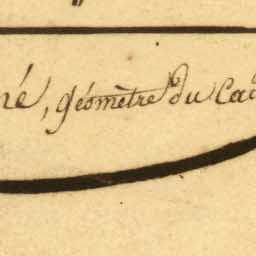 né, géomètre du Ca